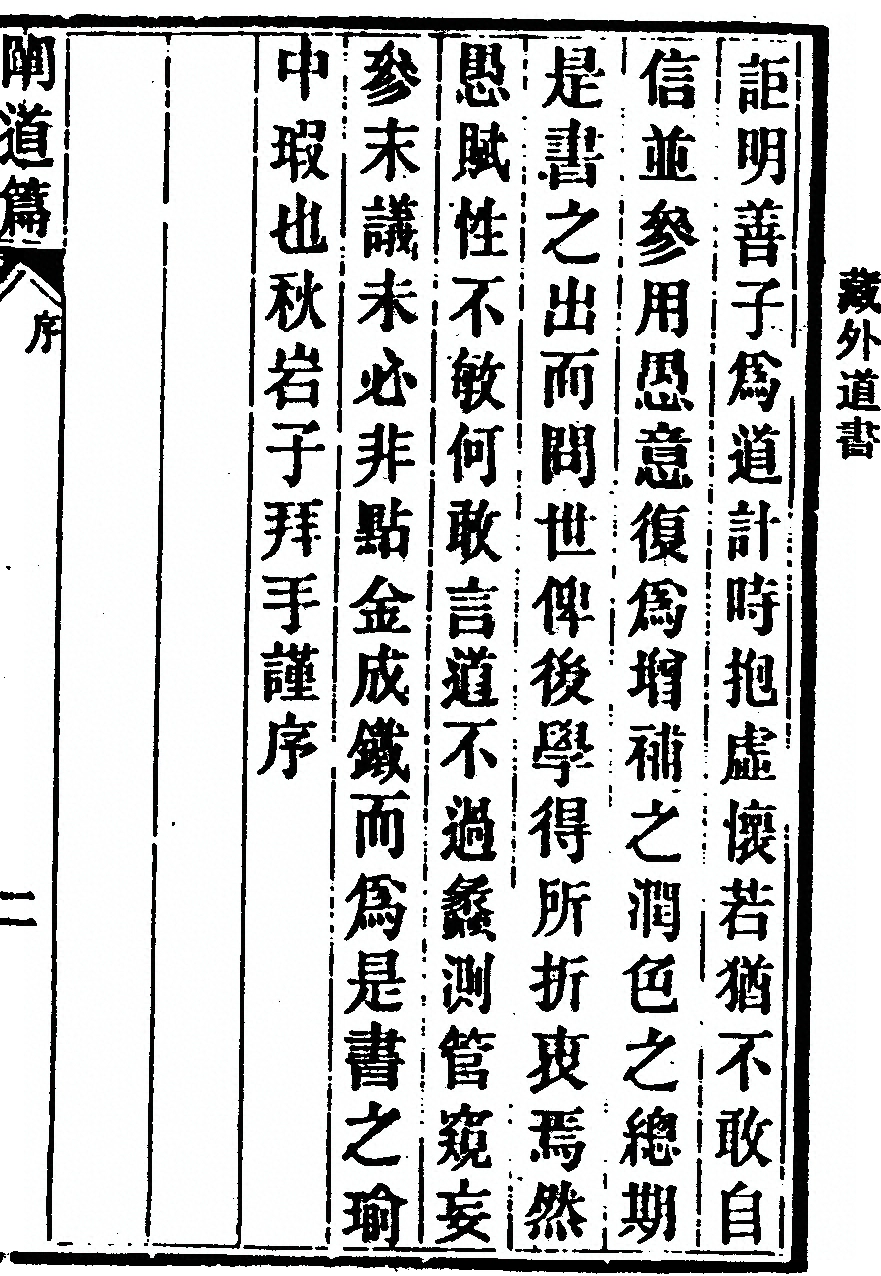 藏外道書
詎明善子爲道計時抱虛懷若猶不敢自
信並參用愚意復爲增補之潤色之總期
是書之出而問世俾後學得所折衷焉然
愚賦性不敏何敢言道不過蠡測管窺妄
參末議未必非點金成鐵而爲是書之瑜
中瑕也秋岩子拜手謹序
闡道篇
序
二